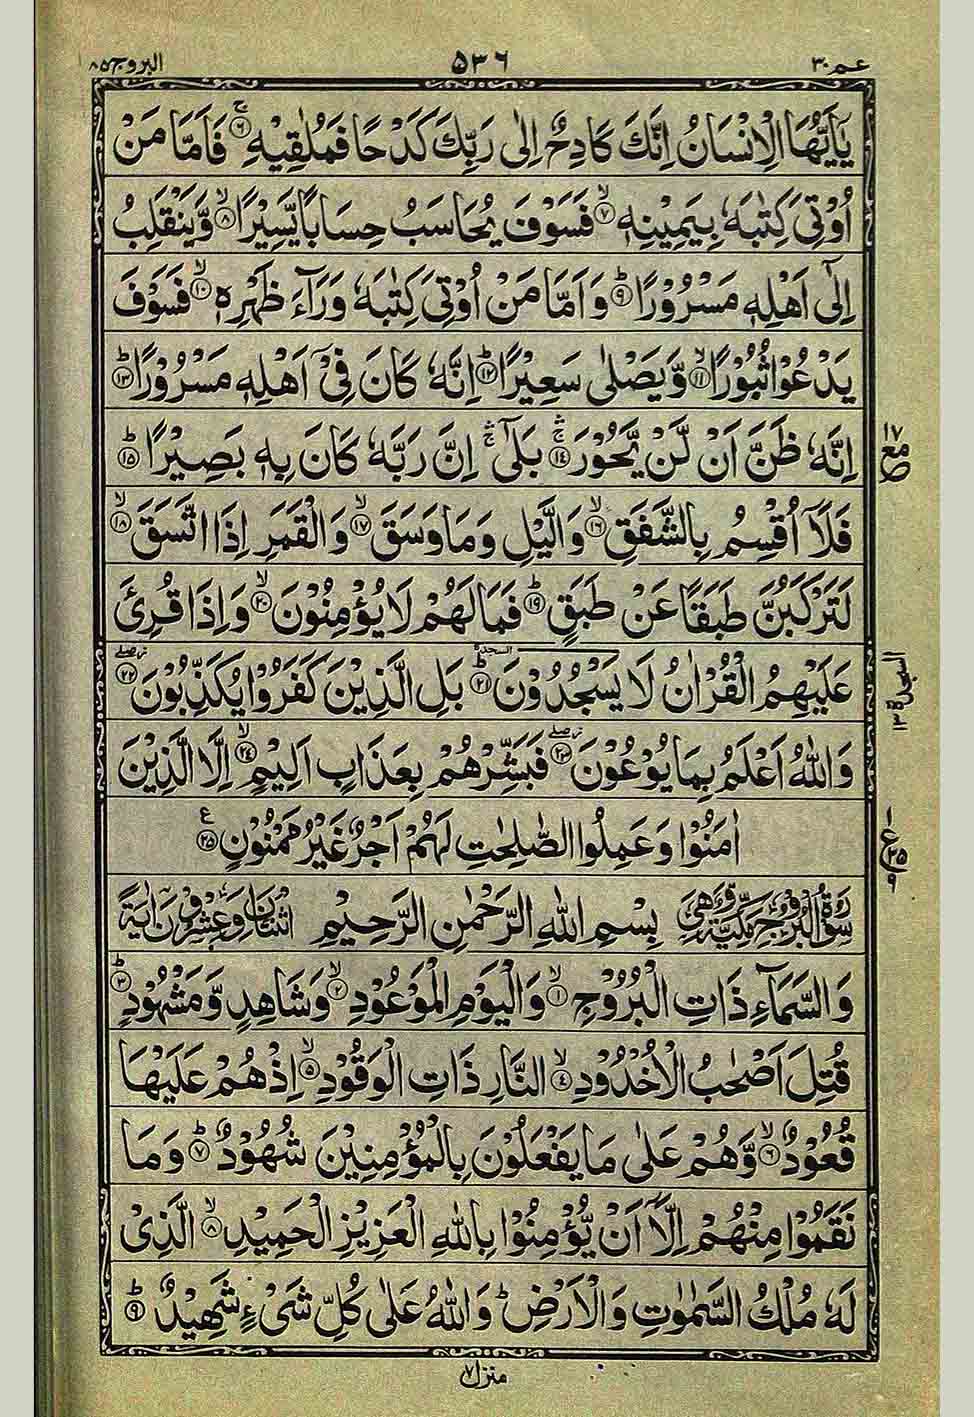 عم ٣٠ ٥٣٦ البروج ٨٥
يٰۤاَيُّهَا الْاِنْسَانُ اِنَّكَ كَادِحٌ اِلٰى رَبِّكَ كَدْحًا فَمُلٰقِيْهِ ۚ‏﴿۶﴾ فَاَمَّا مَنْ
اُوْتِىَ كِتٰبَهٗ بِيَمِيْنِهٖ ۙ‏﴿۷﴾ فَسَوْفَ يُحَاسَبُ حِسَابًا يَّسِيْرًا ۙ‏﴿۸﴾ وَّيَنْقَلِبُ
اِلٰٓى اَهْلِهٖ مَسْرُوْرًا ؕ‏﴿۹﴾ وَاَمَّا مَنْ اُوْتِىَ كِتٰبَهٗ وَرَآءَ ظَهْرِهٖ ۙ‏﴿۱۰﴾ فَسَوْفَ
يَدْعُوْا ثُبُوْرًا ۙ‏﴿۱۱﴾ وَّيَصْلٰى سَعِيْرًا ؕ‏﴿۱۲﴾ اِنَّهٗ كَانَ فِىْۤ اَهْلِهٖ مَسْرُوْرًا ؕ‏﴿۱۳﴾
اِنَّهٗ ظَنَّ اَنْ لَّنْ يَّحُوْرَ ۛۚ‏﴿۱۴﴾ بَلٰٓى ۛۚ اِنَّ رَبَّهٗ كَانَ بِهٖ بَصِيْرًا ؕ‏﴿۱۵﴾
١٧
مع
فَلَاۤ اُقْسِمُ بِالشَّفَقِ ۙ‏﴿۱۶﴾ وَالَّيْلِ وَمَا وَسَقَ ۙ‏﴿۱۷﴾ وَالْقَمَرِ اِذَا اتَّسَقَ ۙ‏﴿۱۸﴾
لَتَرْكَبُنَّ طَبَقًا عَنْ طَبَقٍ ؕ‏﴿۱۹﴾ فَمَا لَهُمْ لَا يُؤْمِنُوْنَ ۙ‏﴿۲۰﴾ وَاِذَا قُرِئَ
عَلَيْهِمُ الْقُرْاٰنُ لَا يَسْجُدُوْنَ ؕ‏﴿۲۱﴾ السجدة بَلِ الَّذِيْنَ كَفَرُوْا يُكَذِّبُوْنَ ۖ‏﴿۲۲﴾
السجدة ١٣
وَاللّٰهُ اَعْلَمُ بِمَا يُوْعُوْنَ ۖ‏﴿۲۳﴾ فَبَشِّرْهُمْ بِعَذَابٍ اَلِيْمٍ ۙ‏﴿۲۴﴾ اِلَّا الَّذِيْنَ
اٰمَنُوْا وَعَمِلُوا الصّٰلِحٰتِ لَهُمْ اَجْرٌ غَيْرُ مَمْنُوْنٍ ﴿۲۵﴾ ع
١
ع ٢٥
٩
سُوْرَةُ الْبُرُوْجِ مَكِّيَّةٌ وَّهِىَ بِسْمِ اللّٰهِ الرَّحْمٰنِ الرَّحِيْمِ اثْنَتَانِ وَعِشْرُوْنَ اٰيَةً
وَالسَّمَآءِ ذَاتِ الْبُرُوْجِ ۙ‏﴿۱﴾ وَالْيَوْمِ الْمَوْعُوْدِ ۙ‏﴿۲﴾ وَشَاهِدٍ وَّمَشْهُوْدٍ ؕ‏﴿۳﴾
قُتِلَ اَصْحٰبُ الْاُخْدُوْدِ ۙ‏﴿۴﴾ النَّارِ ذَاتِ الْوَقُوْدِ ۙ‏﴿۵﴾ اِذْ هُمْ عَلَيْهَا
قُعُوْدٌ ۙ‏﴿۶﴾ وَّهُمْ عَلٰى مَا يَفْعَلُوْنَ بِالْمُؤْمِنِيْنَ شُهُوْدٌ ؕ‏﴿۷﴾ وَمَا
نَقَمُوْا مِنْهُمْ اِلَّاۤ اَنْ يُّؤْمِنُوْا بِاللّٰهِ الْعَزِيْزِ الْحَمِيْدِ ۙ‏﴿۸﴾ الَّذِىْ
لَهٗ مُلْكُ السَّمٰوٰتِ وَالْاَرْضِ ؕ وَاللّٰهُ عَلٰى كُلِّ شَىْءٍ شَهِيْدٌ ؕ‏﴿۹﴾
منزل ٧